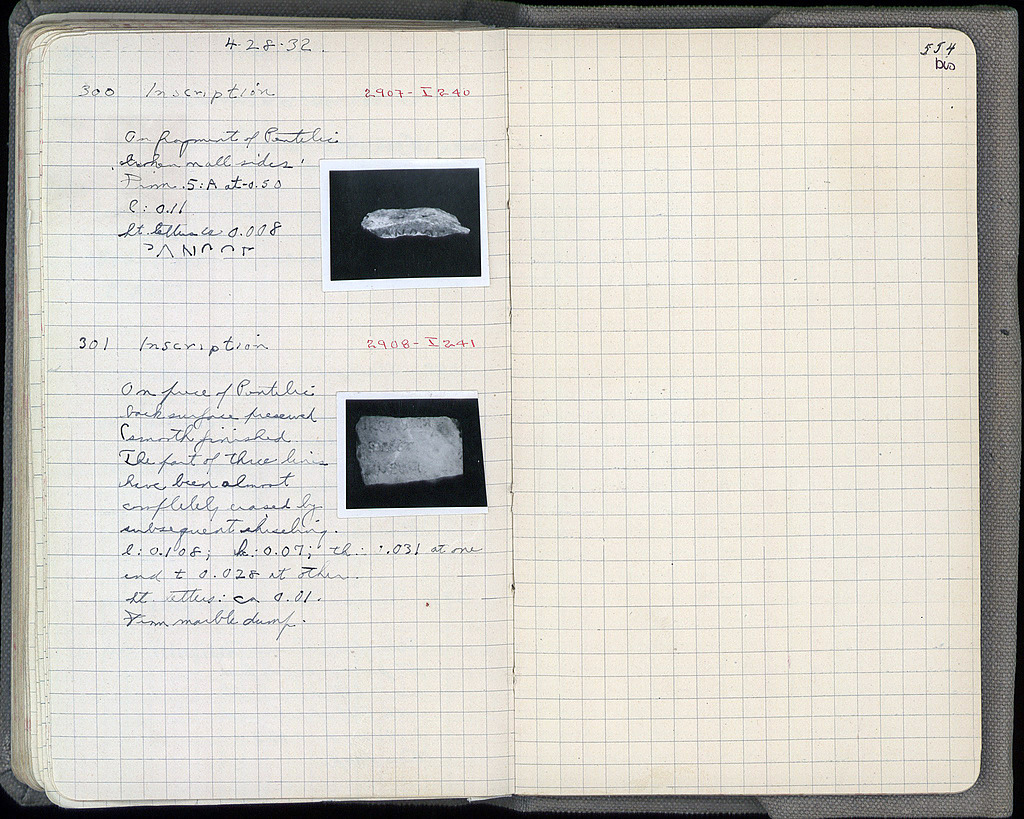 4-28-32.
300 Inscription 2907-I 240
On fragment of Pentelic
broken on all sides.
From 5:A at -0.50
l: 0.11
ht. letters ca 0.008
301 Inscription 2908-I 241
On piece of Pentelic
back surface preserved
(smooth finished.
The part of three lines
have been almost
completely erased by
subsequent chiseling.
l: 0.108; h: 0.07; th: .031 at one
end + 0.028 at other.
ht. letters: ca 0.01.
From marble dump.
554
bis